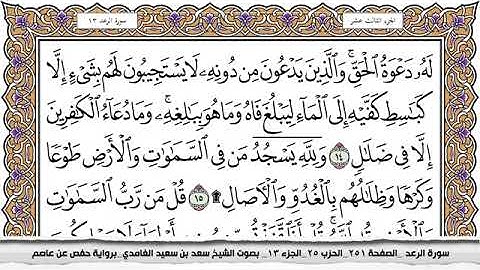 سورة الرعد ١٣
الجزء الثالث عشر
لَهُۥ دَعْوَةُ ٱلْحَقِّ ۖ وَٱلَّذِينَ يَدْعُونَ مِن دُونِهِۦ لَا يَسْتَجِيبُونَ لَهُم بِشَىْءٍ إِلَّا
كَبَٰسِطِ كَفَّيْهِ إِلَى ٱلْمَآءِ لِيَبْلُغَ فَاهُ وَمَا هُوَ بِبَٰلِغِهِۦ ۚ وَمَا دُعَآءُ ٱلْكَٰفِرِينَ
إِلَّا فِى ضَلَٰلٍ ١٤ وَلِلَّهِ يَسْجُدُ مَن فِى ٱلسَّمَٰوَٰتِ وَٱلْأَرْضِ طَوْعًا
وَكَرْهًا وَظِلَٰلُهُم بِٱلْغُدُوِّ وَٱلْءَاصَالِ ۩ ١٥ قُلْ مَن رَّبُّ ٱلسَّمَٰوَٰتِ
سورة الرعد _الصفحة ٢٥١_ الحزب ٢٥_ الجزء ١٣_ بصوت الشيخ سعد بن سعيد الغامدي_ برواية حفص عن عاصم